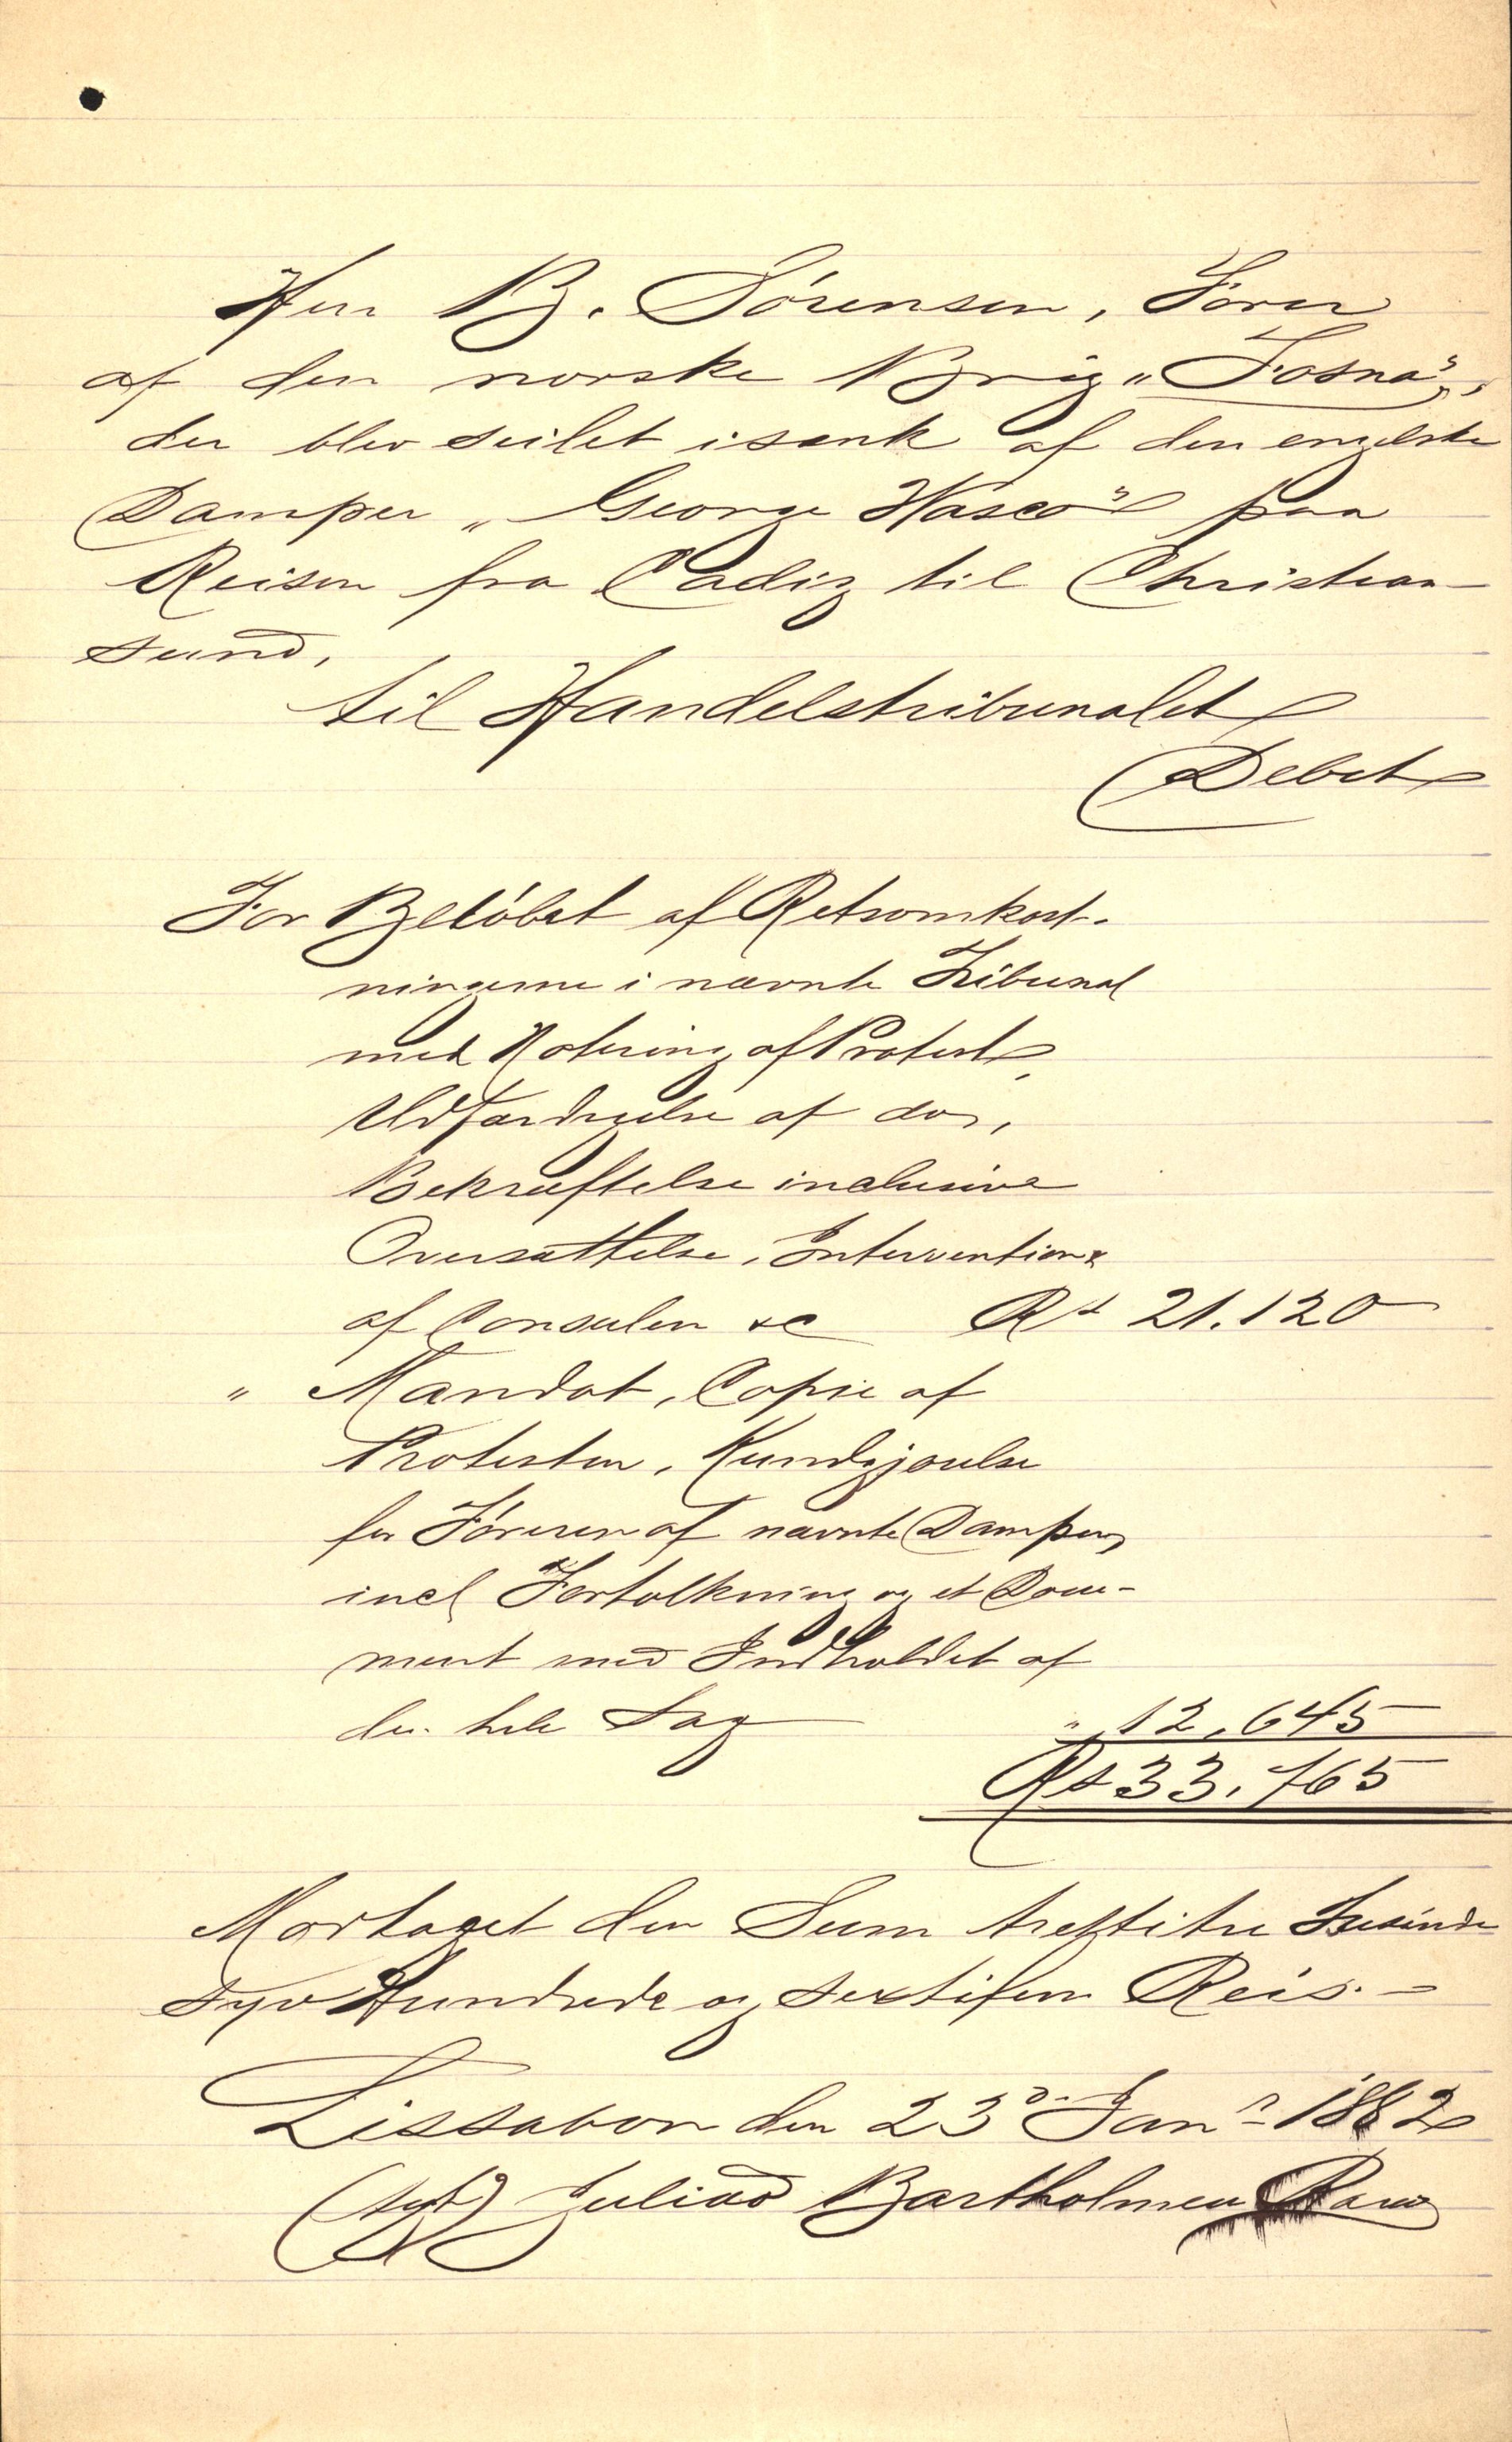 Herr B. Sörensen, Förer
af den norske Brig „Fosna",
der blev seilet isænk af den engelske
Damper „George Vasco" paa
Reisen fra Cadiz til Christian-
sund,
til Handelstribunalet
Debet
For Belöbet af Retsomkost-
ningerne i nævnte Tribunal
med Notering af Protest,
Udfærdigelse af do,
Bekræftelse inclusive
Oversættelse, Intervention
af Consulen &c Rs 21.120
„ Mandat, Copie af
Protesten, Kundgjörelse
for Föreren af nævnte Damper,
incl Fortolkning og et Docu-
ment med Indholdet af
den hele Sag „ 12,645
Rs 33,765
Modtaget den Sum trettitre Tusinde
syv Hundrede og sextifem Reis. =
Lissabon den 23d Janr 1882
(sgt) Julius Bartholmeu